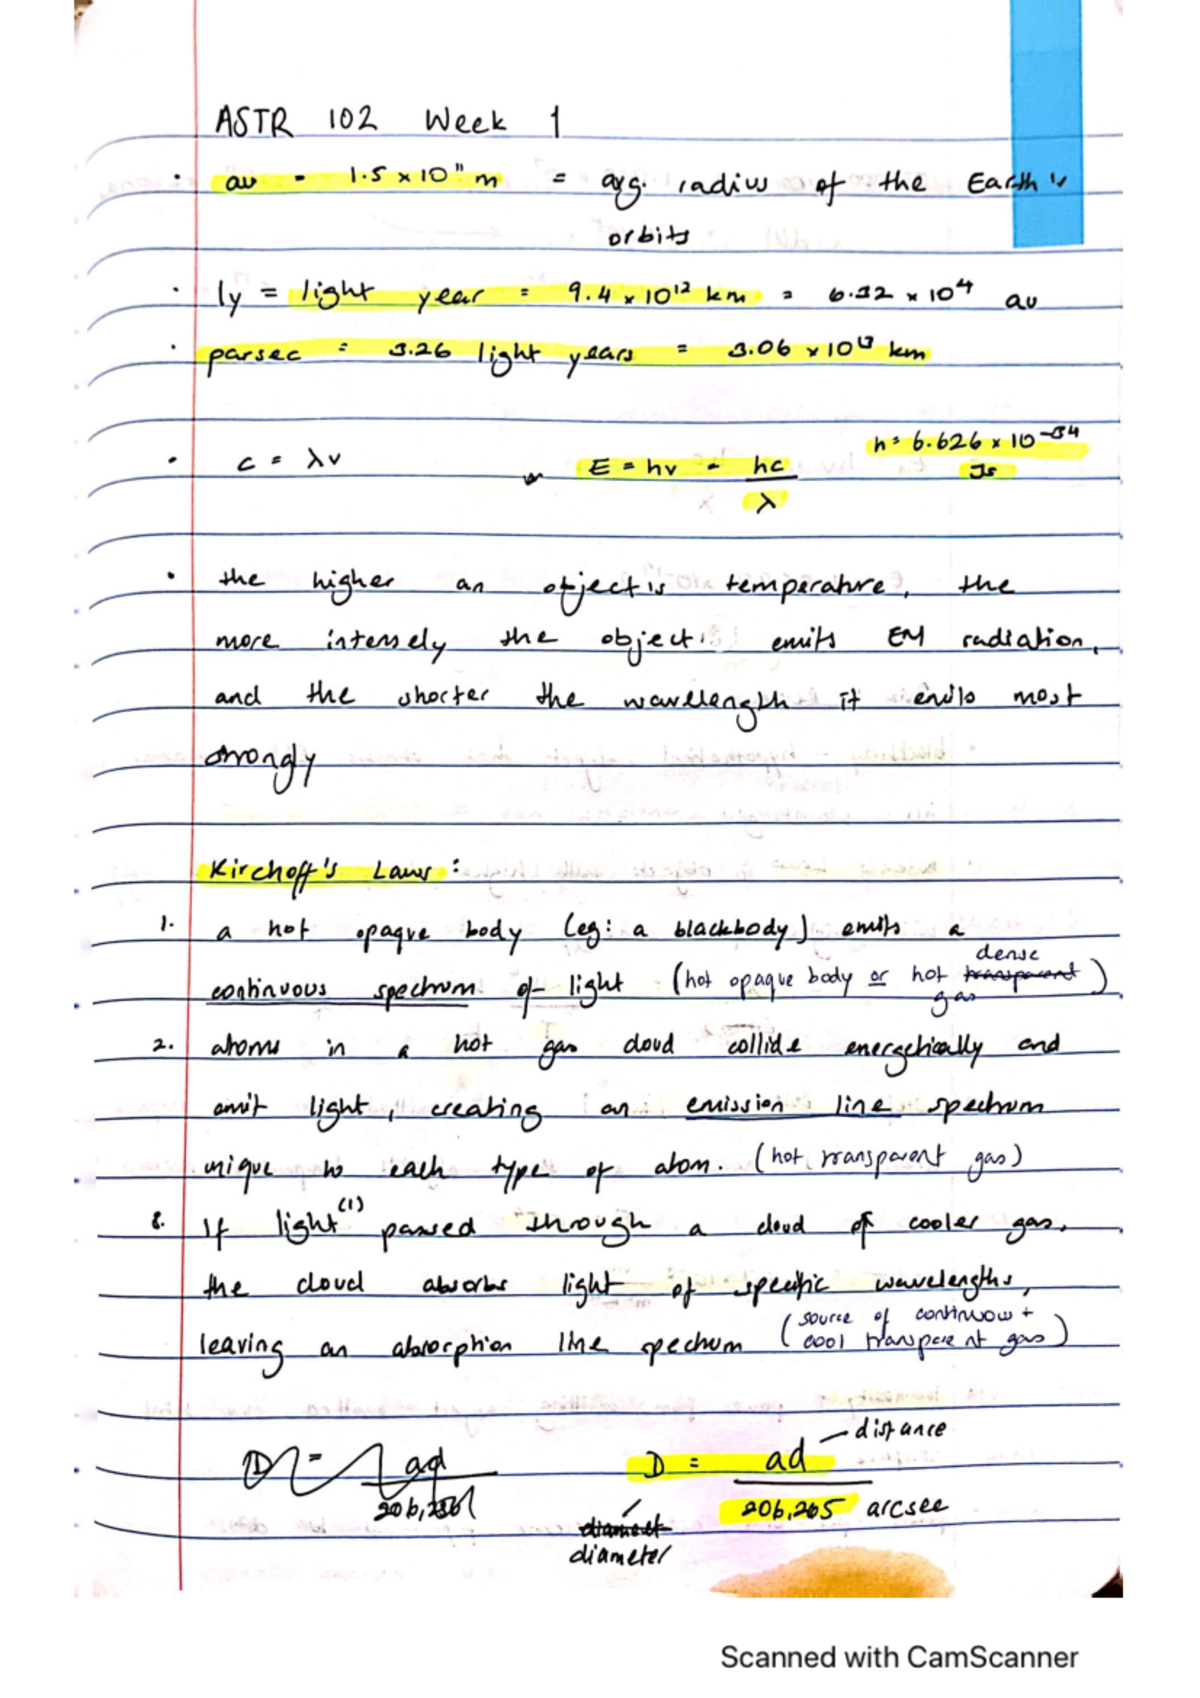 ASTR 102 Week 1
· au = 1.5 x 10¹¹ m = avg. radius of the Earth's
orbits
· ly = light year = 9.4 x 10¹² km = 6.32 x 10⁴ au
· parsec = 3.26 light years = 3.06 x 10¹³ km
· c = λν E = hν = hc/λ h = 6.626 x 10⁻³⁴ Js
· the higher an object's temperature, the
more intensely the object emits EM radiation,
and the shorter the wavelength it emits most
strongly
Kirchoff's Laws:
1. a hot opaque body (eg: a blackbody) emits a
continuous spectrum of light (hot opaque body or hot ~~transparent~~ dense gas)
2. atoms in a hot gas cloud collide energetically and
emit light, creating an emission line spectrum
unique to each type of atom. (hot, transparent gas)
3. If light⁽¹⁾ passed through a cloud of cooler gas,
the cloud absorbs light of specific wavelengths,
leaving an absorption line spectrum (source of continuous + cool transparent gas)
D = ad — distance
206,265 arcsec
diameter
Scanned with CamScanner